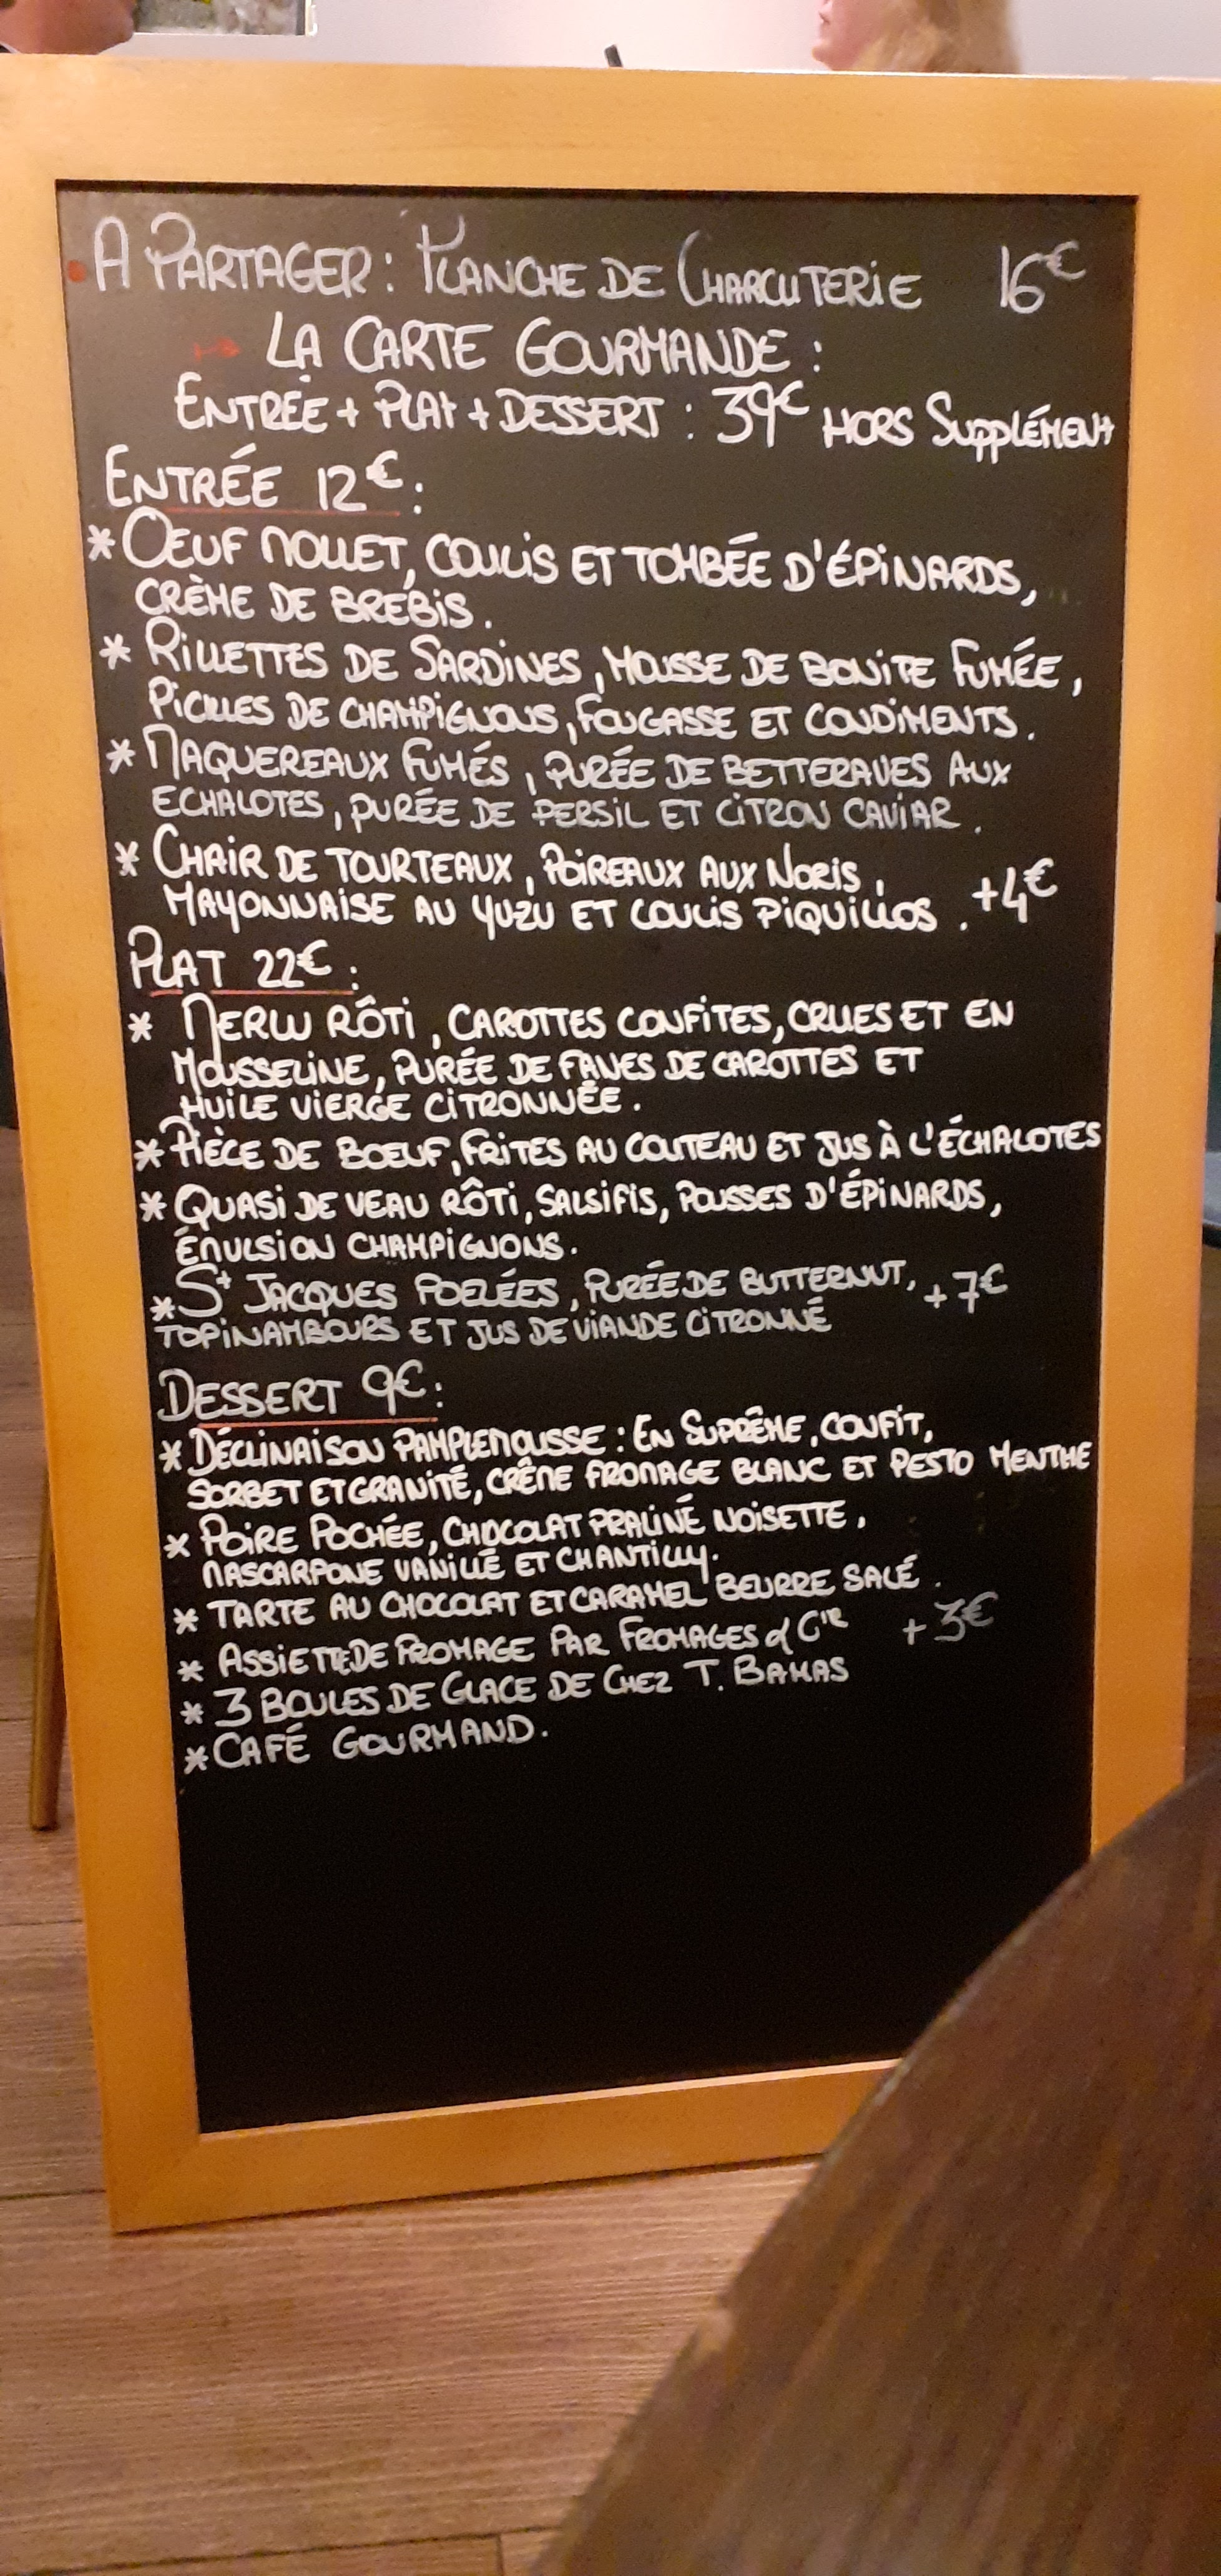 A PARTAGER : PLANCHE DE CHARCUTERIE 16€
LA CARTE GOURMANDE :
ENTRÉE + PLAT + DESSERT : 39€ HORS SUPPLÉMENT
ENTRÉE 12€ :
* OEUF MOLLET, COULIS ET TOMBÉE D'ÉPINARDS,
CRÈME DE BREBIS.
* RILLETTES DE SARDINES, MOUSSE DE BONITE FUMÉE,
PICKLES DE CHAMPIGNONS, FOUGASSE ET CONDIMENTS.
* MAQUEREAUX FUMÉS, PURÉE DE BETTERAVES AUX
ECHALOTES, PURÉE DE PERSIL ET CITRON CAVIAR.
* CHAIR DE TOURTEAUX, POIREAUX AUX NORIS, +4€
MAYONNAISE AU YUZU ET COULIS PIQUILLOS.
PLAT 22€ :
* MERLU RÔTI, CAROTTES CONFITES, CRUES ET EN
MOUSSELINE, PURÉE DE FANES DE CAROTTES ET
HUILE VIERGE CITRONNÉE.
* PIÈCE DE BOEUF, FRITES AU COUTEAU ET JUS À L'ÉCHALOTES
* QUASI DE VEAU RÔTI, SALSIFIS, POUSSES D'ÉPINARDS,
ÉMULSION CHAMPIGNONS.
* St JACQUES POELÉES, PURÉE DE BUTTERNUT, +7€
TOPINAMBOURS ET JUS DE VIANDE CITRONNÉ
DESSERT 9€ :
* DÉCLINAISON PAMPLEMOUSSE : EN SUPRÊME, CONFIT,
SORBET ET GRANITÉ, CRÊME FROMAGE BLANC ET PESTO MENTHE
* POIRE POCHÉE, CHOCOLAT PRALINÉ NOISETTE,
MASCARPONE VANILLÉ ET CHANTILLY.
* TARTE AU CHOCOLAT ET CARAMEL BEURRE SALÉ.
* ASSIETTE DE FROMAGE PAR FROMAGES & Cie +3€
* 3 BOULES DE GLACE DE CHEZ T. BAMAS
* CAFÉ GOURMAND.